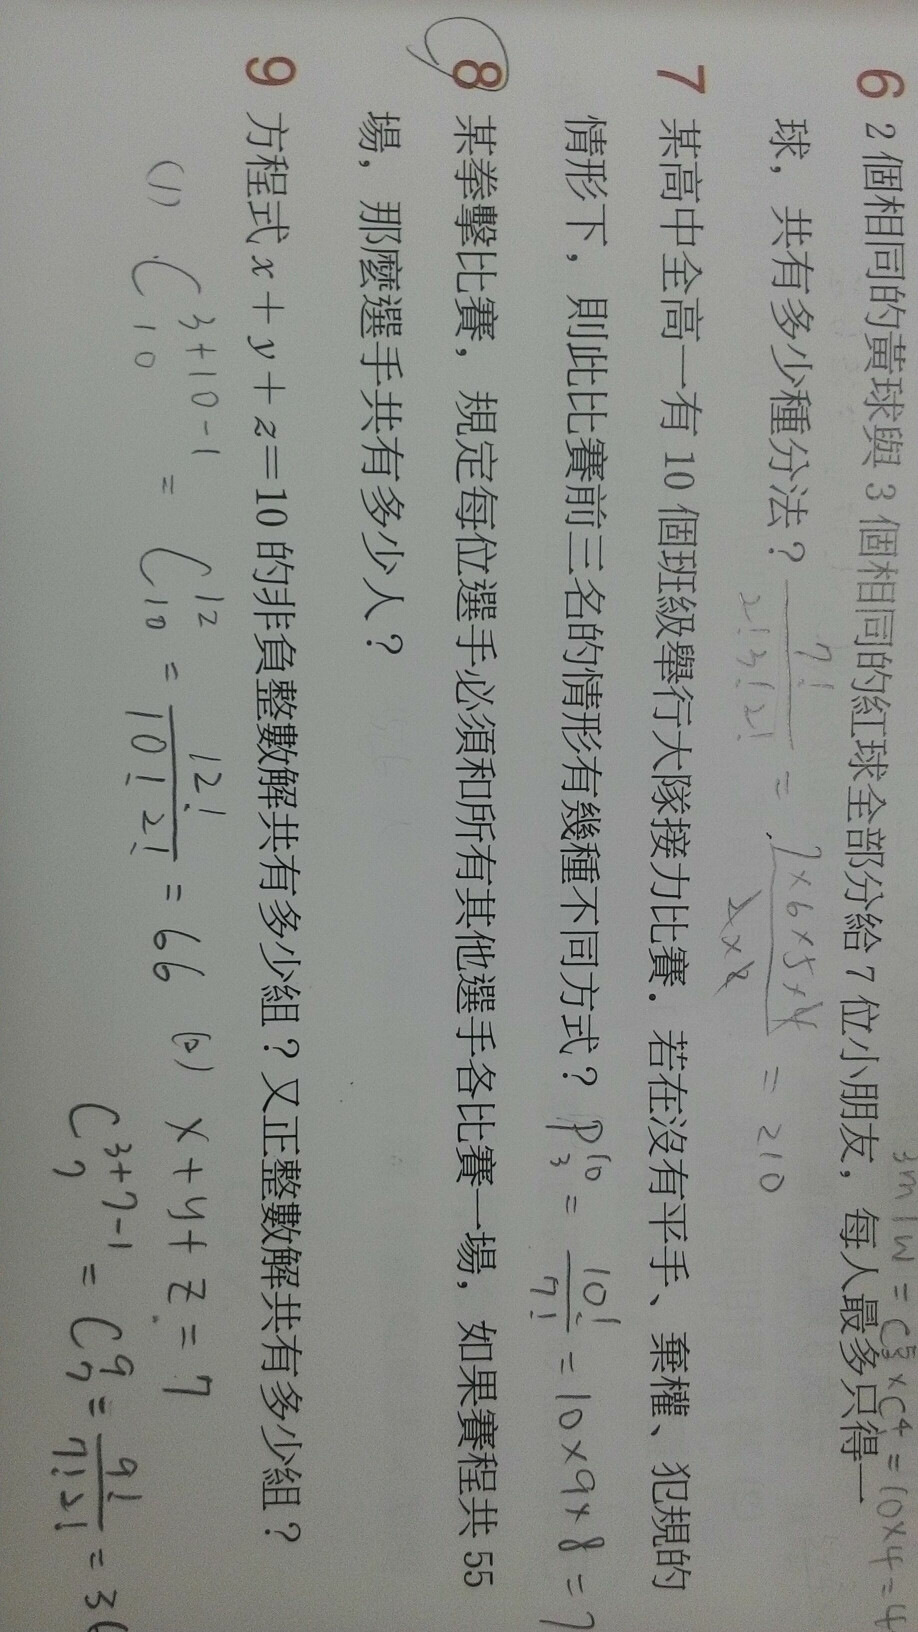 3m1w = C⁵₃ × C⁴ = 10×4 = 4
6 2 個相同的黃球與 3 個相同的紅球全部分給 7 位小朋友，每人最多只得一
球，共有多少種分法？ 7!/2!3!2! = 7×6×5×4/2×2 = 210
7 某高中全高一有 10 個班級舉行大隊接力比賽．若在沒有平手、棄權、犯規的
情形下，則此比賽前三名的情形有幾種不同方式？ P¹⁰₃ = 10!/7! = 10×9×8 = 7
8 某拳擊比賽，規定每位選手必須和所有其他選手各比賽一場，如果賽程共 55
場，那麼選手共有多少人？
9 方程式 x + y + z = 10 的非負整數解共有多少組？又正整數解共有多少組？
(1) C³⁺¹⁰⁻¹₁₀ = C¹²₁₀ = 12!/10!2! = 66 (2) x + y + z = 7
C³⁺⁷⁻¹₇ = C⁹₇ = 9!/7!2! = 36